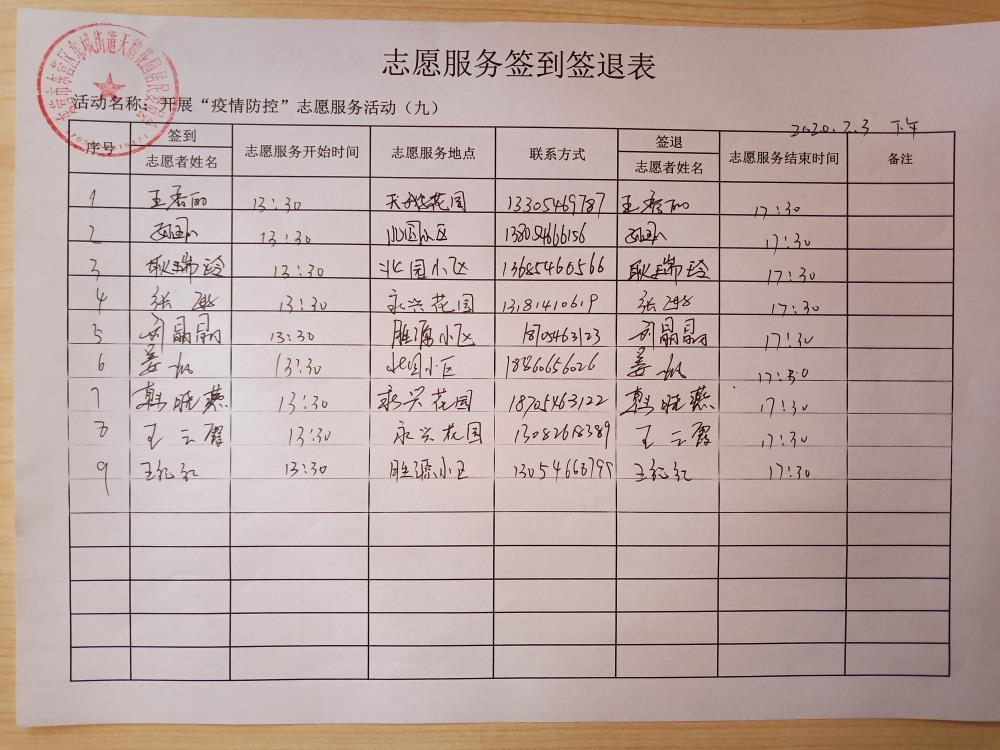 志愿服务签到签退表
活动名称：开展“疫情防控”志愿服务活动（九）
2020.2.3 下午
序号 签到 志愿者姓名 志愿服务开始时间 志愿服务地点 联系方式 签退 志愿者姓名 志愿服务结束时间 备注
1 王香丽 13:30 天鹅花园 13305469787 王香丽 17:30
2 13:30 北园小区 13805466156 17:30
3 耿瑞玲 13:30 北园小区 13685460566 耿瑞玲 17:30
4 张 13:30 永兴花园 13181410619 张 17:30
5 刘晶晶 13:30 胜源小区 18705463123 刘晶晶 17:30
6 姜 13:30 北园小区 18860656026 姜 17:30
7 韩旺燕 13:30 永兴花园 18705463122 韩旺燕 17:30
8 王云霞 13:30 永兴花园 13082618389 王云霞 17:30
9 王红红 13:30 胜源小区 王红红 17:30